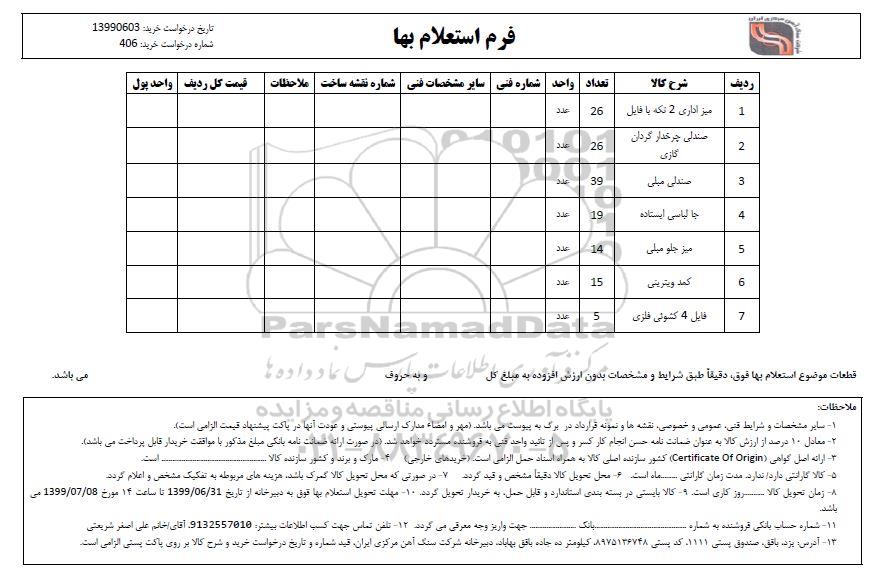 تاریخ درخواست خرید: 13990603
فرم استعلام بها
شماره درخواست خرید: 406
ردیف شرح کالا تعداد واحد شماره فنی سایر مشخصات فنی شماره نقشه ساخت ملاحظات قیمت کل ردیف واحد پول
1 میز اداری 2 تکه با فایل 26 عدد
2 صندلی چرخدار گردان گازی 26 عدد
3 صندلی مبلی 39 عدد
4 جا لباسی ایستاده 19 عدد
5 میز جلو مبلی 14 عدد
6 کمد ویترینی 15 عدد
7 فایل 4 کشوئی فلزی 5 عدد
ParsNamadData
مرکز فرآوری اطلاعات پارس نماد داده ها
قطعات موضوع استعلام بها فوق، دقیقاً طبق شرایط و مشخصات بدون ارزش افزوده به مبلغ کل و به حروف می باشد.
پایگاه اطلاع رسانی مناقصه و مزایده
ملاحظات:
۱- سایر مشخصات و شرایط فنی، عمومی و خصوصی، نقشه ها و نمونه قرارداد در برگ به پیوست می باشد. (مهر و امضاء مدارک ارسالی پیوستی و عودت آنها در پاکت پیشنهاد قیمت الزامی است).
۲- معادل ۱۰ درصد از ارزش کالا به عنوان ضمانت نامه حسن انجام کار کسر و پس از تائید واحد فنی به فروشنده مسترد خواهد شد. (در صورت ارائه ضمانت نامه بانکی مبلغ مذکور با موافقت خریدار قابل پرداخت می باشد).
۳- ارائه اصل گواهی (Certificate Of Origin) کشور سازنده اصلی کالا به همراه اسناد حمل الزامی است.(خریدهای خارجی) ۴- مارک و برند و کشور سازنده کالا .......................................... است.
۵- کالا گارانتی دارد/ ندارد. مدت زمان گارانتی ........ماه است. ۶- محل تحویل کالا دقیقاً مشخص و قید گردد. ۷- در صورتی که محل تحویل کالا گمرک باشد، هزینه های مربوطه به تفکیک مشخص و اعلام گردد.
۸- زمان تحویل کالا ..........روز کاری است. ۹- کالا بایستی در بسته بندی استاندارد و قابل حمل، به خریدار تحویل گردد. ۱۰- مهلت تحویل استعلام بها فوق به دبیرخانه از تاریخ 1399/06/31 تا ساعت ۱۴ مورخ 1399/07/08 می
باشد.
۱۱- شماره حساب بانکی فروشنده به شماره ......................................بانک ................... جهت واریز وجه معرفی می گردد. ۱۲- تلفن تماس جهت کسب اطلاعات بیشتر: 9132557010، آقای/خانم علی اصغر شریعتی
۱۳- آدرس: یزد، بافق، صندوق پستی ۱۱۱۱، کد پستی ۸۹۷۵۱۳۶۷۴۸، کیلومتر ده جاده بافق بهاباد، دبیرخانه شرکت سنگ آهن مرکزی ایران، قید شماره و تاریخ درخواست خرید و شرح کالا بر روی پاکت پستی الزامی است.